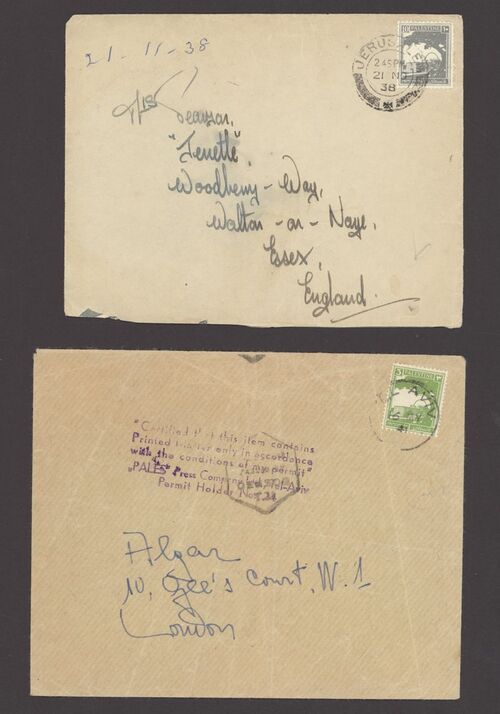 21-11-38
10 PALESTINE 10
JERUS
2 45 PM
21 NO
38
"Tenette",
Woodberry-Way,
Walton-on-Naze,
Essex,
England.
3 PALESTINE
AVIV
41
"Certified that this item contains
Printed Matter only in accordance
with the conditions of the permit"
"PALES" Press Company Ltd. Tel-Aviv
Permit Holder No.
CENSOR
Algar
10, Gee's Court, W.1
London